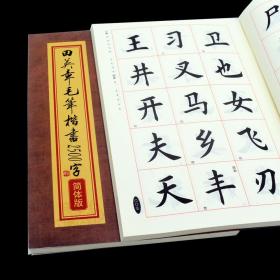 田英章毛笔楷书2500字
简体版
王习卫
井叉也
开马女
夫乡飞
天丰刃
尸